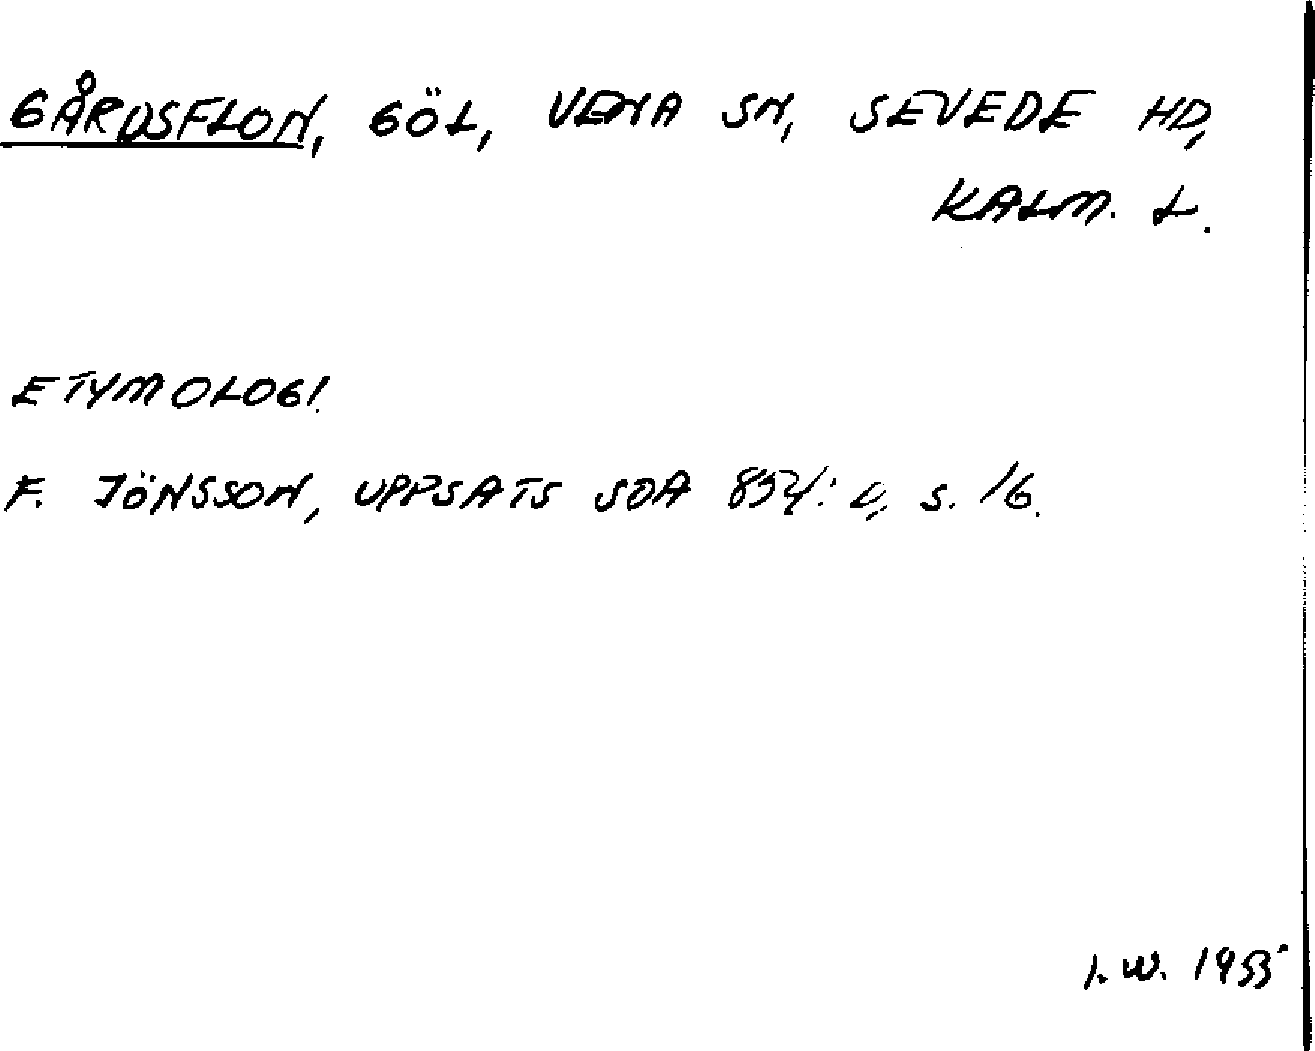 GÅRDSFLON, GÖL, VENA SN, SEVEDE HD,
KALM. L.
ETYMOLOGI.
F. JÖNSSON, UPPSATS SOA s. 16.
I.W. 1955